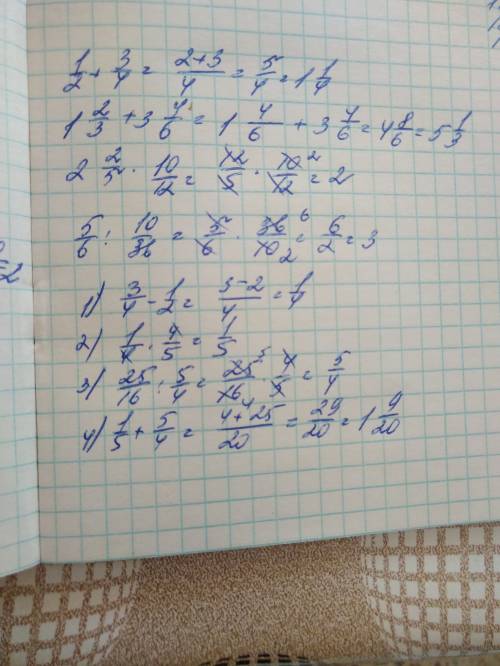 1/2 + 3/4 = (2+3)/4 = 5/4 = 1 1/4
1 2/3 + 3 4/6 = 1 4/6 + 3 4/6 = 4 8/6 = 5 1/3
2 2/5 · 10/12 = 12/5 · 10/12 ² = 2
5/6 : 10/36 = 5/6 · 36/10 ⁶ ₂ = 6/2 = 3
1) 3/4 - 1/2 = (3-2)/4 = 1/4
2) 1/4 · 4/5 = 1/5
3) 25/16 : 5/4 = 25/16 ⁵ ₄ · 4/5 = 5/4
4) 1/5 + 5/4 = (4+25)/20 = 29/20 = 1 9/20